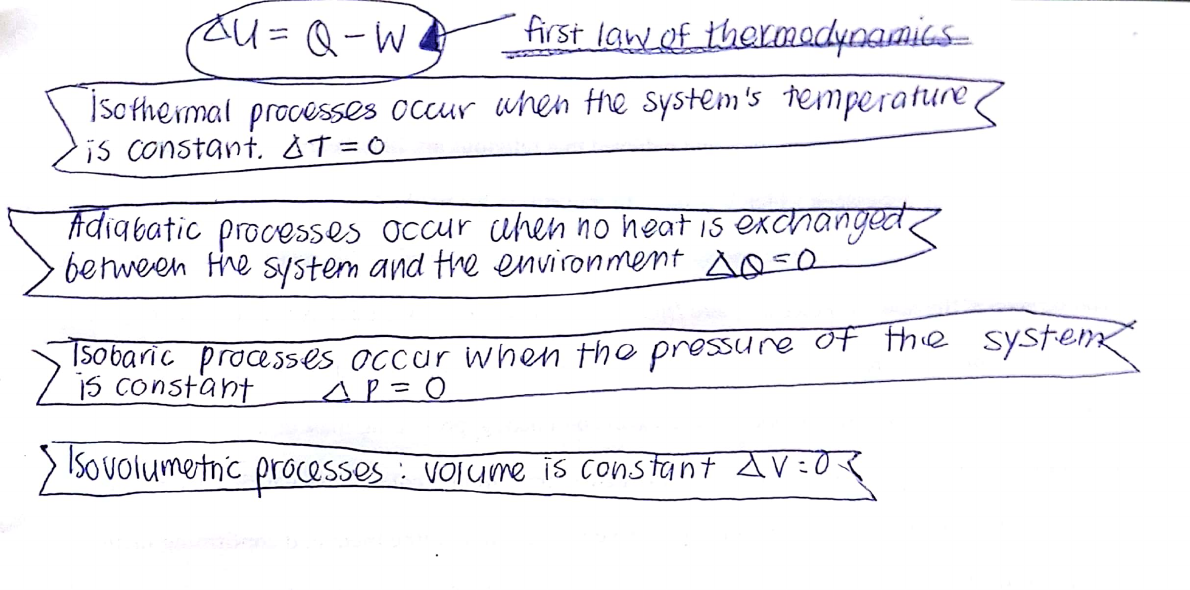 ΔU = Q - W first law of thermodynamics
Isothermal processes occur when the system's temperature
is constant. ΔT = 0
Adiabatic processes occur when no heat is exchanged
between the system and the environment ΔQ = 0
Isobaric processes occur when the pressure of the system
is constant ΔP = 0
Isovolumetric processes : volume is constant ΔV = 0